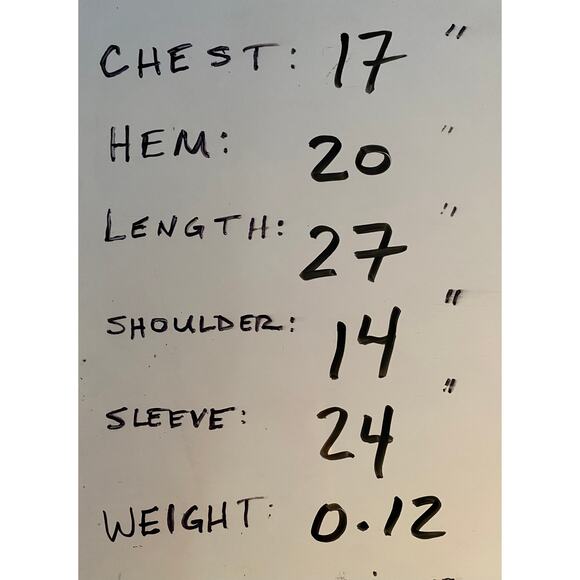 CHEST: 17"
HEM: 20"
LENGTH: 27"
SHOULDER: 14"
SLEEVE: 24"
WEIGHT: 0.12